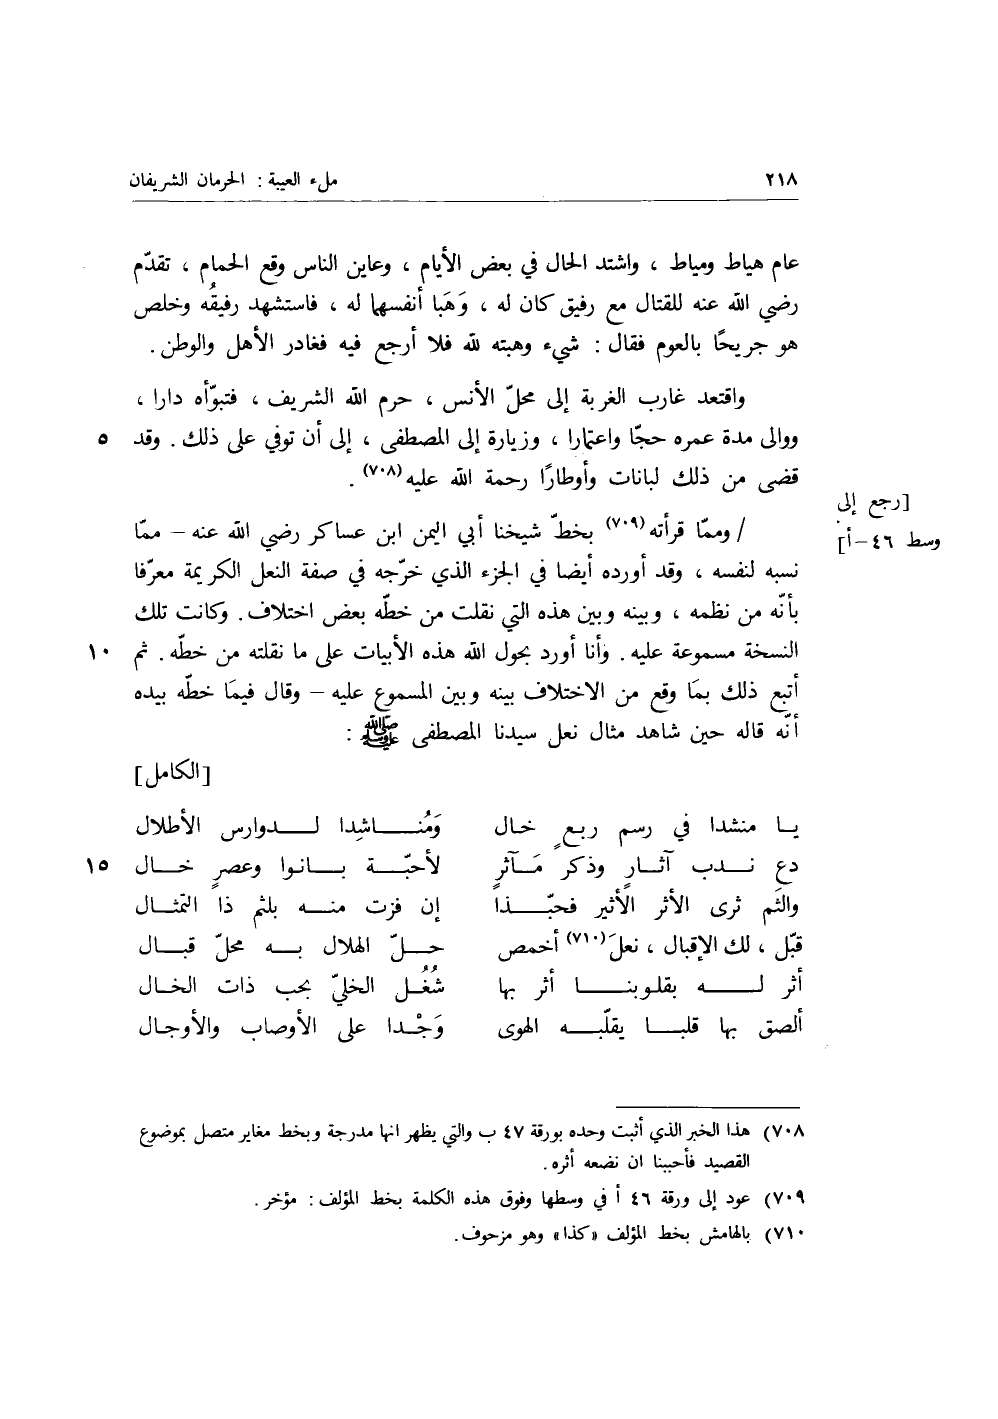 ٢١٨ ملء العيبة : الحرمان الشريفان
عام هياط ومياط ، واشتد الحال في بعض الأيام ، وعاين الناس وقع الحمام ، تقدّم
رضي الله عنه للقتال مع رفيق كان له ، وَهَبا أنفسهما له ، فاستشهد رفيقُه وخلص
هو جريحًا بالعوم فقال : شيء وهبته لله فلا أرجع فيه فغادر الأهل والوطن .
واقتعد غارب الغربة إلى محلّ الأنس ، حرم الله الشريف ، فتبوّأه دارا ،
ووالى مدة عمره حجّا واعتمارا ، وزيارة إلى المصطفى ، إلى أن توفي على ذلك . وقد ٥
قضى من ذلك لبانات وأوطارًا رحمة الله عليه (٧٠٨) .
[رجع إلى
وسط ٤٦ –أ]
/ وممّا قرأته (٧٠٩) بخطّ شيخنا أبي اليمن ابن عساكر رضي الله عنه – ممّا
نسبه لنفسه ، وقد أورده أيضا في الجزء الذي خرّجه في صفة النعل الكريمة معرّفا
بأنّه من نظمه ، وبينه وبين هذه التي نقلت من خطّه بعض اختلاف . وكانت تلك
النسخة مسموعة عليه . وأنا أورد بحول الله هذه الأبيات على ما نقلته من خطّه . ثم ١٠
أتبع ذلك بمَا وقع من الاختلاف بينه وبين المسموع عليه – وقال فيمَا خطّه بيده
أنّه قاله حين شاهد مثال نعل سيدنا المصطفى ﷺ :
[الكامل]
يـا منشدا في رسم ربعٍ خال وَمُنـاشِدا لـدوارس الأطلال
دع نـدب آثـارٍ وذكر مَـآثرٍ لأحبّـة بـانوا وعصرٍ خـال ١٥
والثَم ثرى الأثر الأثير فحبّـذا إن فزت منـه بلثم ذا التمثـال
قبّل ، لك الإقبال ، نعلَ (٧١٠) أخمص حـلّ الهلال بـه محلّ قبـال
أثر لـه بقلوبنـا أثر بها شُغُـل الخليّ بحب ذات الخال
ألصق بها قلبـا يقلّبـه الهوى وَجْـدا على الأوصاب والأوجال
٧٠٨) هذا الخبر الذي أثبت وحده بورقة ٤٧ ب والتي يظهر انها مدرجة وبخط مغاير متصل بموضوع
القصيد فأحببنا ان نضعه أثره .
٧٠٩) عود إلى ورقة ٤٦ أ في وسطها وفوق هذه الكلمة بخط المؤلف : مؤخر .
٧١٠) بالهامش بخط المؤلف «كذا» وهو مزحوف .